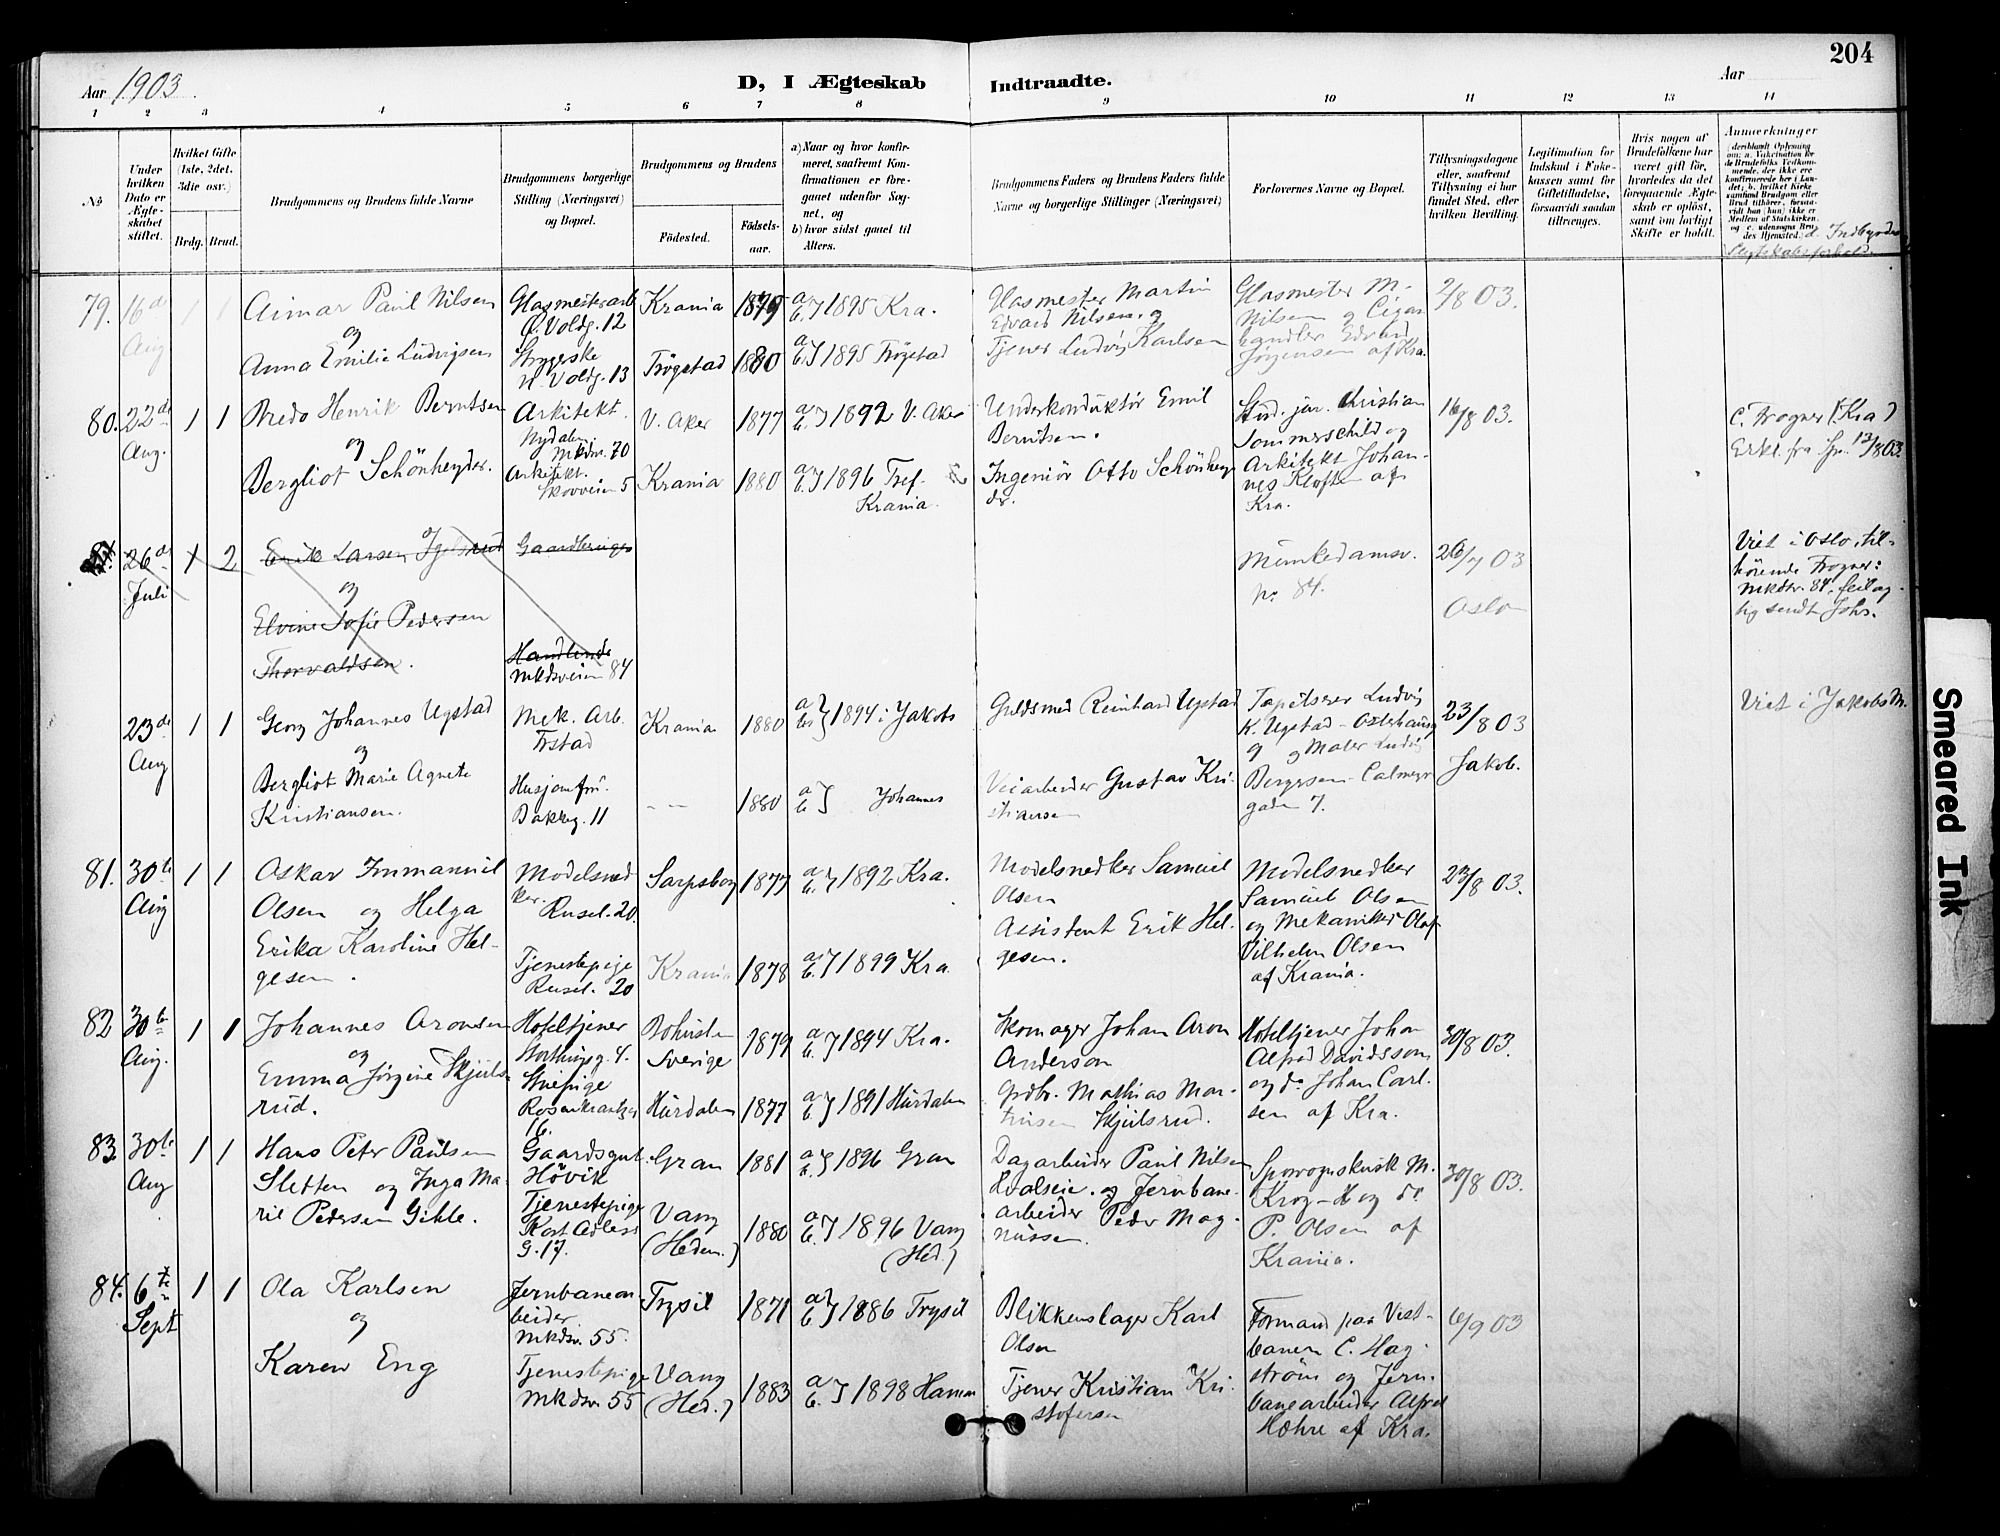 204
Aar 1903.
D, I Ægteskab Indtraadte.
Aar
1 2 3 4 5 6 7 8 9 10 11 12 13 14
No
Under hvilken Dato er Ægteskabet stiftet.
Hvilket Gifte (1ste, 2det, 3die osv.)
Brdg. Brud.
Brudgommens og Brudens fulde Navne
Brudgommens borgerlige Stilling (Næringsvei) og Bopæl.
Brudgommens og Brudens
Fødested.
Fødsels-aar.
a) Naar og hvor konfirmeret, saafremt Konfirmationen er foregaaet udenfor Sognet, og
b) hvor sidst gaaet til Alters.
Brudgommens Faders og Brudens Faders fulde Navne og borgerlige Stillinger (Næringsvei)
Forlovernes Navne og Bopæl.
Tillysningsdagene eller, saafremt Tillysning ei har fundet Sted, efter hvilken Bevilling.
Legitimation for Indskud i Enkekassen samt for Giftetilladelse, forsaavidt saadan tiltrænges.
Hvis nogen af Brudefolkene har været gift før, hvorledes da det foregaaende Ægteskab er opløst, samt om lovligt Skifte er holdt.
Anmerkninger
79. 16de Aug 1 1
Aimar Paul Nilsen
og
Anna Emilie Ludvigsen
Glasmesterarb.
Ø. Voldg. 12
Strygeske
N. Voldg. 13
Krania 1879
a b } 1895 Kra.
Trøgstad 1880
a b } 1895 Trøgstad
Glasmester Martin
Edvard Nilsen. og
Tjener Ludvig Karlsen
Glasmester M.
Nilsen og Cigar
handler Edvard
Jørgensen af Kra.
9/8 03.
80. 22de Aug. 1 1
Predo Henrik Berntsen
og
Bergliot Schönheyder.
Arkitekt.
Nydalen
Mkdsv. 70
Arkitekt.
Skovveien 5
V. Aker 1877
a b } 1892 V. Aker
Krania 1880
a b } 1896 Tref.
Krania.
Underkonduktör Emil
Berntsen.
Ingeniör Otto Schönhey
der.
Stud. jur. Christian
Sommerschild og
Arkitekt Johan-
nes Kloften af
Kra.
16/8 03.
C. Frogner (Kra)
Erkl. fra Spr. 13/8 03.
26de Juli 1 2
Erik Larsen
og
Elvine Sofie Pedersen
Thorvaldsen.
Handlende
Mkdsveien 84
Munkedamsv.
No 84.
26/7 03
Oslo
Viet i Oslo, til-
hörende Frogner:
Mkdv. 84, feilag-
tig sendt Johs.
23de Aug 1 1
Georg Johannes Ugstad
og
Bergliot Marie Agnete
Kristiansen.
Mek. Arb.
Husjomfru.
Bakkeg. 11
Krania 1880
a b } 1894 i Jakobs
-- 1880
a b } Johannes
Guldsmed Reinhard Ugstad
Veiarbeider Gustav Kri-
stiansen
Tapetserer Ludvig
K. Ugstad - Osterhausg
9 og Maler Ludvig
Bergersen - Calmeyr
gaden 7.
23/8 03
Jakob.
Viet i Jakobs M.
81. 30te Aug 1 1
Oskar Immanuel
Olsen og Helga
Erika Karoline Hel-
gesen.
Modelsned
ker.
Rusel. 20.
Tjenestepige
Rusel. 20
Sarpsborg 1877
a b } 1892 Kra.
Krania 1878
a b } 1899 Kra.
Modelsnedker Samuel
Olsen
Assistent Erik Hel-
gesen.
Modelsnedker
Samuel Olsen
og Mekaniker Olaf
Vilhelm Olsen
af Krania.
23/8 03.
82 30te Aug. 1 1
Johannes Aronsen
og
Emma Jørgine Skjuls-
rud.
Hoteltjener
Storthingsg. 4.
Stuepige
Rosenkrantzg
16.
Bohuslen
Sverige 1879
a b } 1894 Kra.
Hurdalen 1877
a b } 1891 Hurdalen
Skomager Johan Aron
Anderson
Grdbr. Mathias Mar-
tinsen Skjulsrud.
Hoteltjener Johan
Alfred Davidsson
og do Johan Carl-
sen af Kra.
30/8 03.
83 30te Aug 1 1
Hans Peter Paulsen
Sletten og Inga Ma-
rie Pedersen Gihle.
Gaardsgut
Hövik
Tjenestepige
Kort Adlers
G. 17.
Gran 1881
a b } 1896 Gran
Vang
(Hedm.) 1880
a b } 1896 Vang
(Hed.)
Dagarbeider Paul Nilsen
Hvalseie. og Jernbane-
arbeider Peder Mag-
nussen.
Sporvognskusk M.
Krog-H og do
P. Olsen af
Krania.
30/8 03.
84. 6te Sept 1 1
Ola Karlsen
og
Karen Eng
Jernbanear
beider.
Mkdsv. 55.
Tjenestepige
Mkdsv. 55
Trysil 1871
a b } 1886 Trysil
Vang
(Hed.) 1883
a b } 1898 Hamar
Blikkenslager Karl
Olsen
Tjener Kristian Kri-
stofersen
Formand paa Vest-
banen C. Hag-
ström og Jern-
banearbeider Alfred
Hæhre af Kra.
6/9 03
Smeared Ink